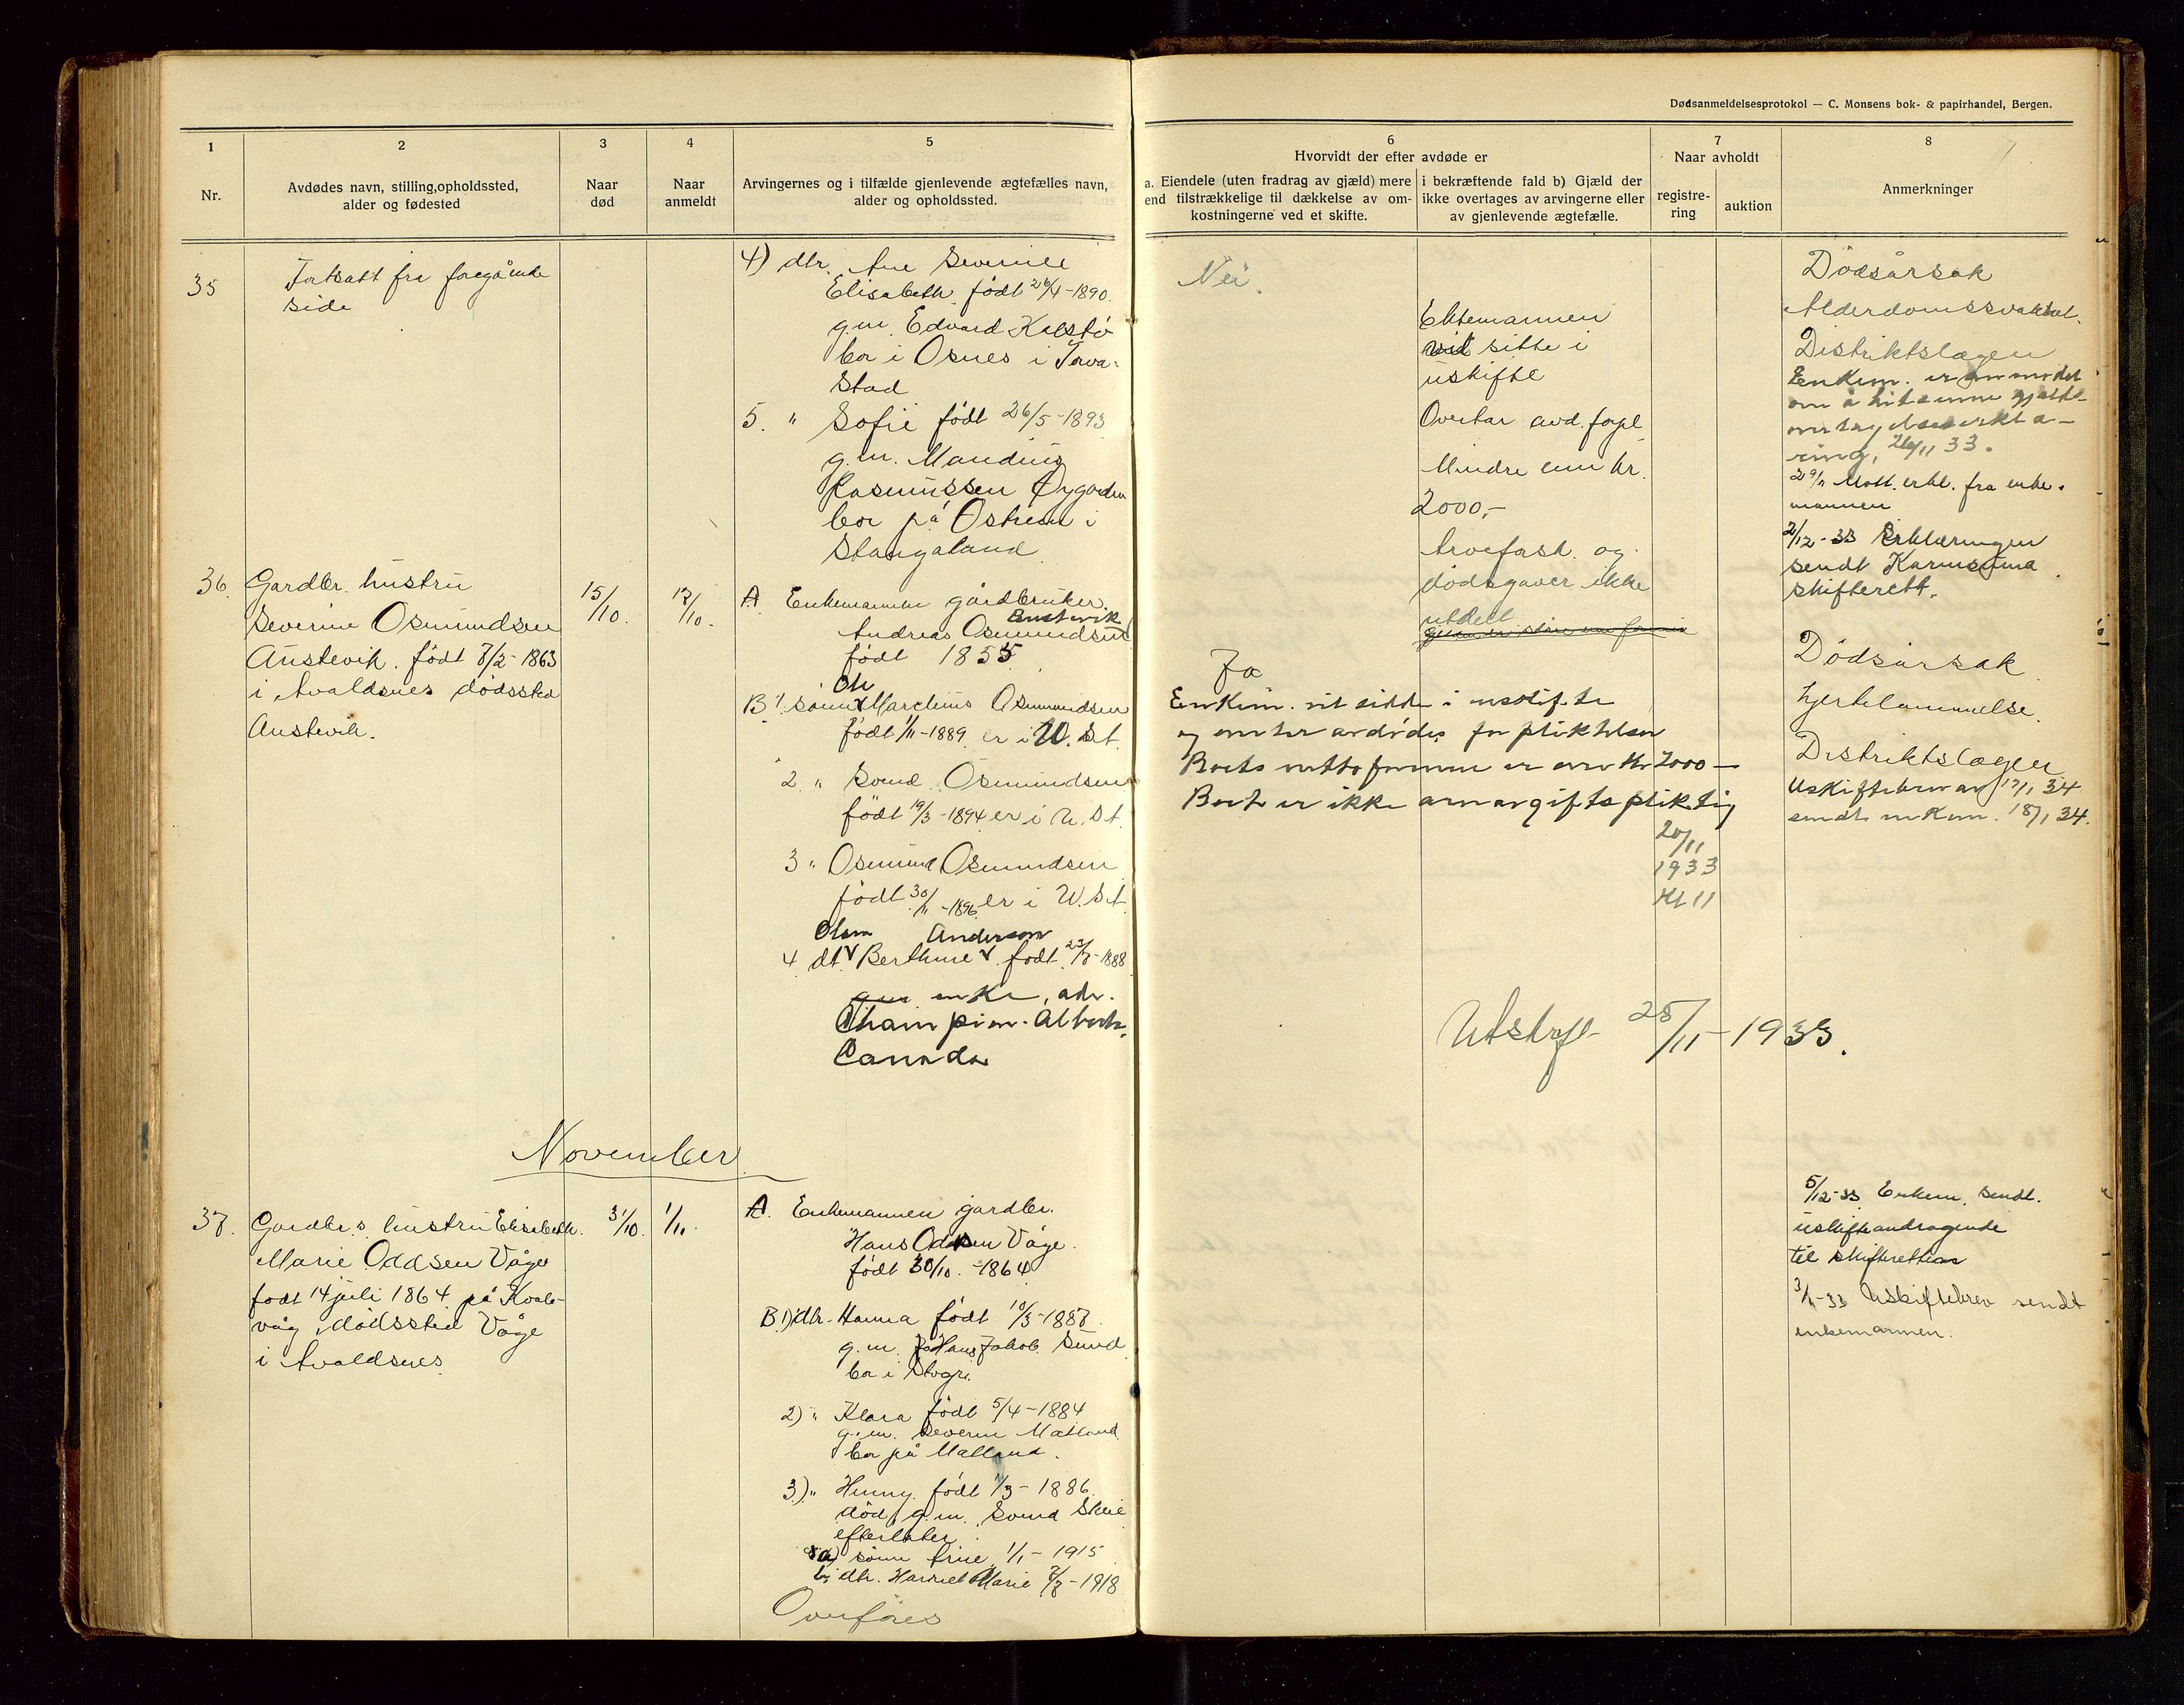 Dødsanmeldelsesprotokol — C. Monsens bok- & papirhandel, Bergen.
1
Nr.
2
Avdødes navn, stilling, opholdssted,
alder og fødested
3
Naar
død
4
Naar
anmeldt
5
Arvingernes og i tilfælde gjenlevende ægtefælles navn,
alder og opholdssted.
6
Hvorvidt der efter avdøde er
a. Eiendele (uten fradrag av gjæld) mere
end tilstrækkelige til dækkelse av om-
kostningerne ved et skifte.
i bekræftende fald b) Gjæld der
ikke overtages av arvingerne eller
av gjenlevende ægtefælle.
7
Naar avholdt
registre-
ring
auktion
8
Anmerkninger
35
Fortsatt fra foregående
side
4) dtr. Ane Severine
Elisabeth født 26/4-1890.
g.m. Edvard Kalstø
bor i Osnes i Torva-
stad
5. " Sofie født 26/5-1893
g.m. Mandius
Rasmussen Øygarden
bor på Østrem i
Stangaland
Nei.
Ektemannen
vil sitte i
uskifte
Overtar avd. forpl
Mindre enn kr.
2000,-
Arveforsk. og
dødsgaver ikke
utdelt
Dødsårsak
Alderdomssvakhet.
Distriktslægen
Enkem. er anmodet
om å
26/11 33.
29/11 Mott. erkl. fra enke-
mannen
2/12-33 Erklæringen
sendt Karmsund
skifterett.
36.
Gardbr. hustru
Severine Osmundsen
Austevik. født 7/2-1863
i Avaldsnes dødssted
Austevik.
15/10.
17/10.
A. Enkemannen gårdbruker.
Austevik
Andreas Osmundsen
født 1855
B 1. sønn Marelius Osmundsen
født 1/11-1889 er i U. St.
2. " Svend Osmundsen
født 19/3-1894 er i U. St.
3 " Osmund Osmundsen
født 30/11-1896 er i U. St.
Olsen Anderson
4 dt. Berthine født 23/7-1888
enke, adr.
Champion. Alberta,
Canada
Ja
Enkem. vil sidde i uskifte
og overtar avdødes forpliktelser
Boets nettoformue er over kr 2000 —
Boet er ikke arveavgiftspliktig
20/11
1933
Kl 11
Dødsårsak
hjertelammelse.
Distriktslægen
Uskiftebrev av 17/1 34
sendt enkem. 18/1 34.
25/11-1933.
November
37.
Gardbr.s hustru Elisabeth
Marie Oddsen Våge
født 14 juli 1864 på Kvale-
våg, dødssted Våge
i Avaldsnes
31/10.
1/11.
A. Enkemannen gardbr.
Hans Oddsen Våge.
født 30/10.-1864
B 1) dtr. Hanna født 10/3-1887
g.m. Hans Jakob Sund
bor i
2) " Klara født 5/4-1884
g.m. Severin Matland
bor på Matland.
3) " Henny født 1/3-1886.
død, g.m. Svend Skeie
efterlater:
a) sønn Arne 1/1-1915
b; dtr. Harriet Marie 7/7-1918
Overføres
5/12-33 Enkem. sendt
uskifteandragende
til skifteretten
3/1-33 Uskiftebrev sendt
enkemannen.